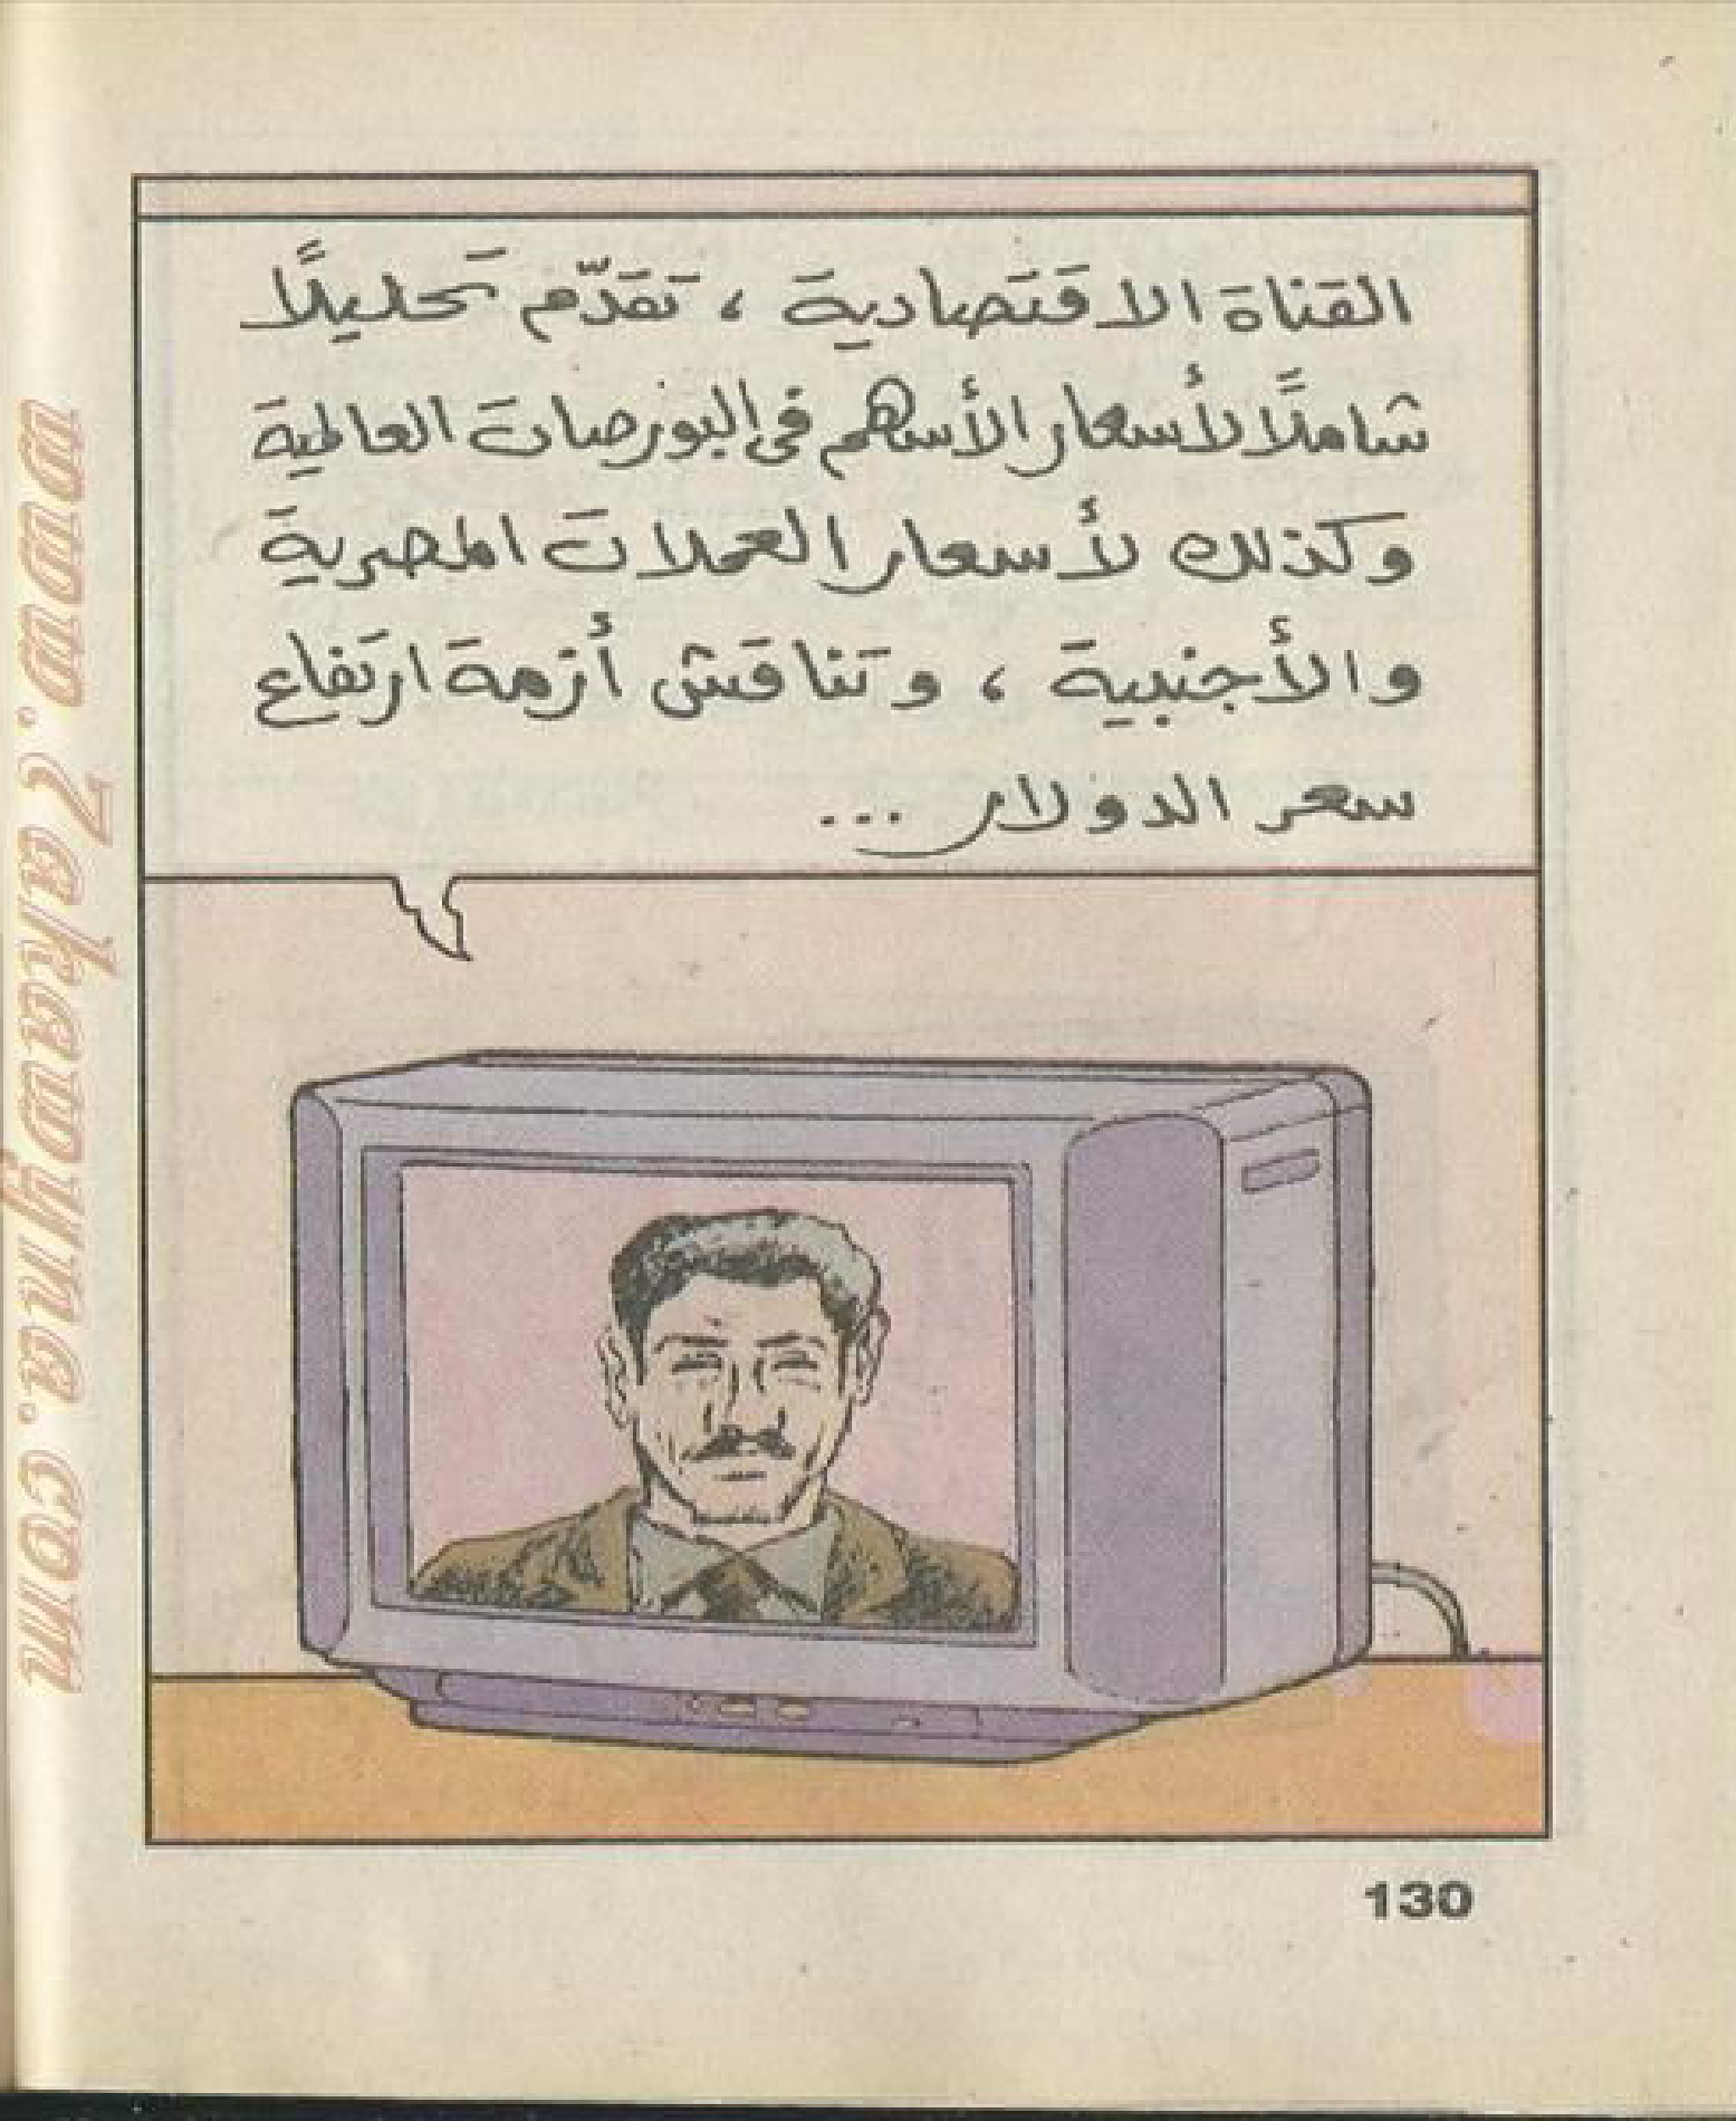 القناة الاقتصادية ، تقدّم تحليلًا
شاملًا لأسعار الأسهم فى البورصات العالمية
وكذلك لأسعار العملات المصرية
والأجنبية ، وتناقش أزمة ارتفاع
سعر الدولار ...
130
www.Zakaowlyna.com